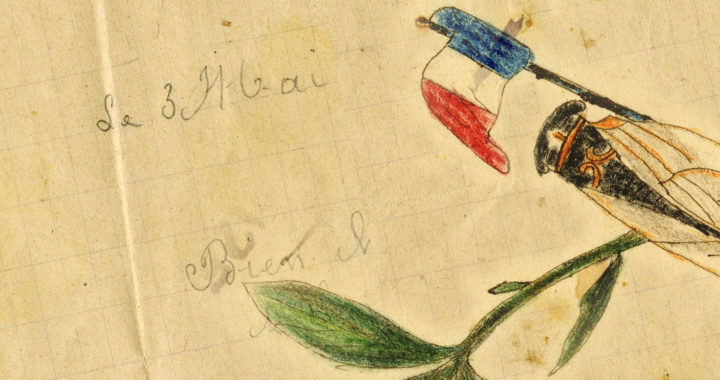 Le 3 Mai
Bien